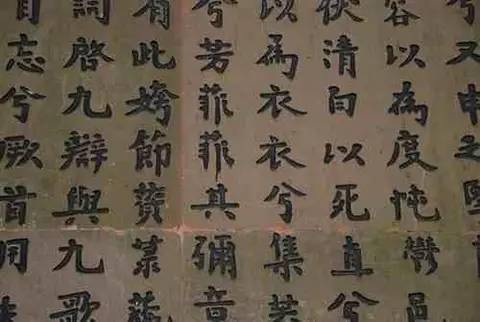 兮又申之
容以為度忳鬱邑
伏清白以死直兮
以為衣衣兮集芙
兮芳菲菲其彌章
有此姱節薋菉葹
詞啓九辯與九歌
自忘兮厥首用夫